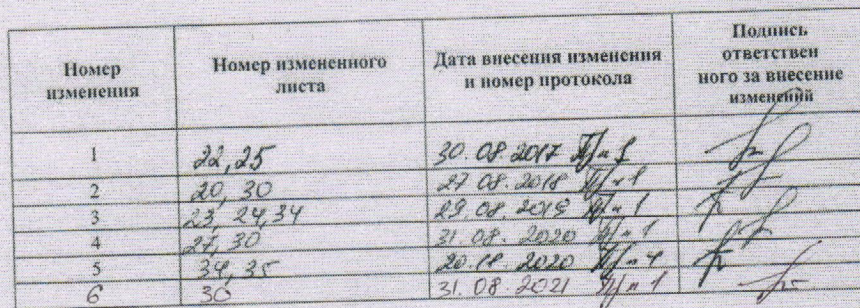 Номер изменения
Номер измененного листа
Дата внесения изменения и номер протокола
Подпись ответствен ного за внесение изменений
1 22, 25 30.08.2017
2 20, 30 27.08.2018
3 23, 24, 34 29.08.2019
4 27, 30 31.08.2020
5 34, 35 2020
6 30 31.08.2021